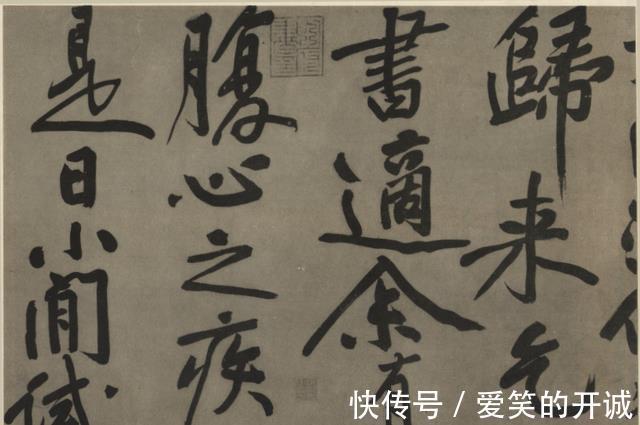 歸来乞
書適余有
腹心之疾
是日小閒試
快传号 / 爱笑的开诚